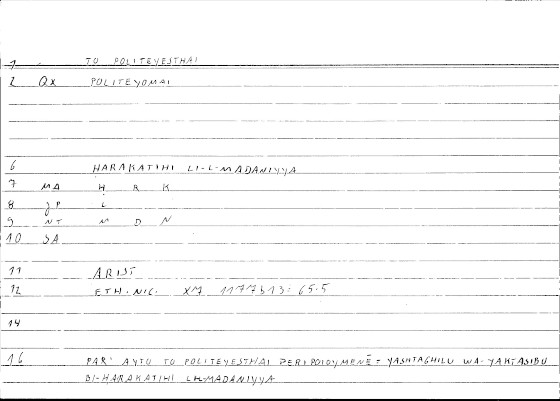 1 - TO POLITEYESTHAI
2 QX POLITEYOMAI
6 HARAKATIHI LI-L-MADANIYYA
7 MA Ḥ R K
8 JP L
9 NT M D N
10 SA
11 ARIST
12 ETH. NIC. X7 1177b13: 65.5
14
16 PAR' AYTO TO POLITEYESTHAI PERIPOIOYMENĒ = YASHTAGHILU WA-YAKTASIBU
BI-HARAKATIHI LI-L-MADANIYYA